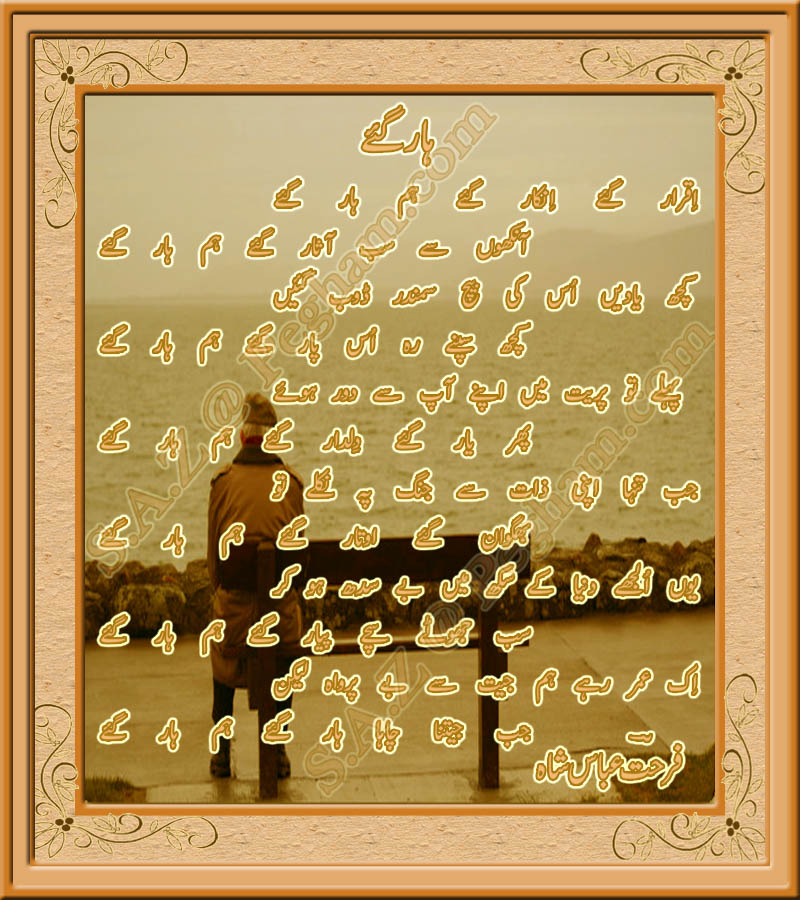 ہار گئے
اِقرار گئے اِنکار گئے ہم ہار گئے
آنکھوں سے سب آثار گئے ہم ہار گئے
کچھ یادیں اُس کی بیچ سمندر ڈوب گئیں
کچھ سپنے رہ اُس پار گئے ہم ہار گئے
پہلے تو پریت میں اپنے آپ سے دور ہوئے
پھر یار گئے دِلدار گئے ہم ہار گئے
جب تنہا اپنی ذات سے جنگ پہ نکلے تو
بھگوان گئے اوتار گئے ہم ہار گئے
یوں اُلجھے دنیا کے سکھ میں بے سدھ ہو کر
سب جھوٹے سچے پیار گئے ہم ہار گئے
اِک عمر رہے ہم جیت سے بے پرواہ لیکن
جب جیتنا چاہا ہار گئے ہم ہار گئے
فرحت عباس شاہ
S.A.Z @ Pegham.com
S.A.Z @ Pegham.com